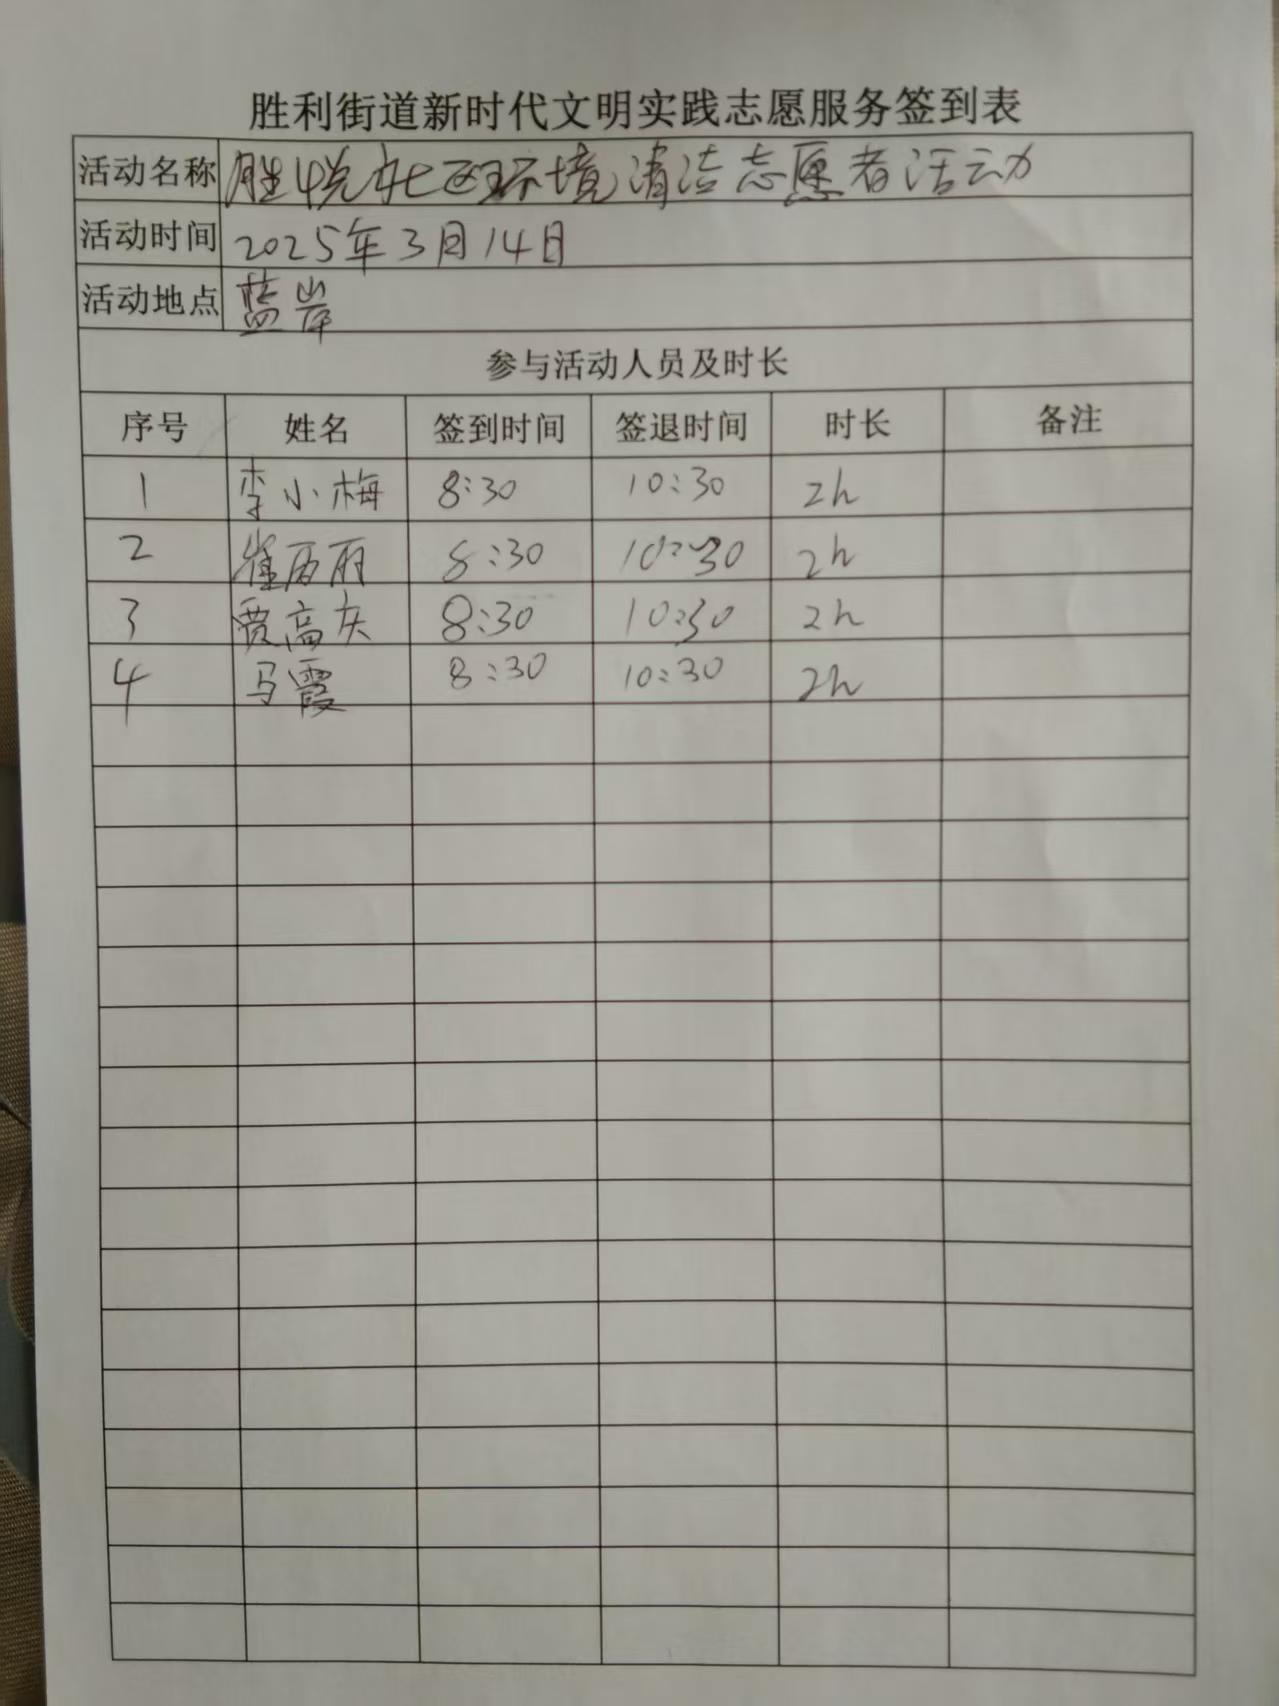 胜利街道新时代文明实践志愿服务签到表
活动名称 胜悦社区环境清洁志愿者活动
活动时间 2025年3月14日
活动地点 蓝岸
参与活动人员及时长
序号 姓名 签到时间 签退时间 时长 备注
1 李小梅 8:30 10:30 2h
2 崔丽 8:30 10:30 2h
3 贾高 8:30 10:30 2h
4 马霞 8:30 10:30 2h